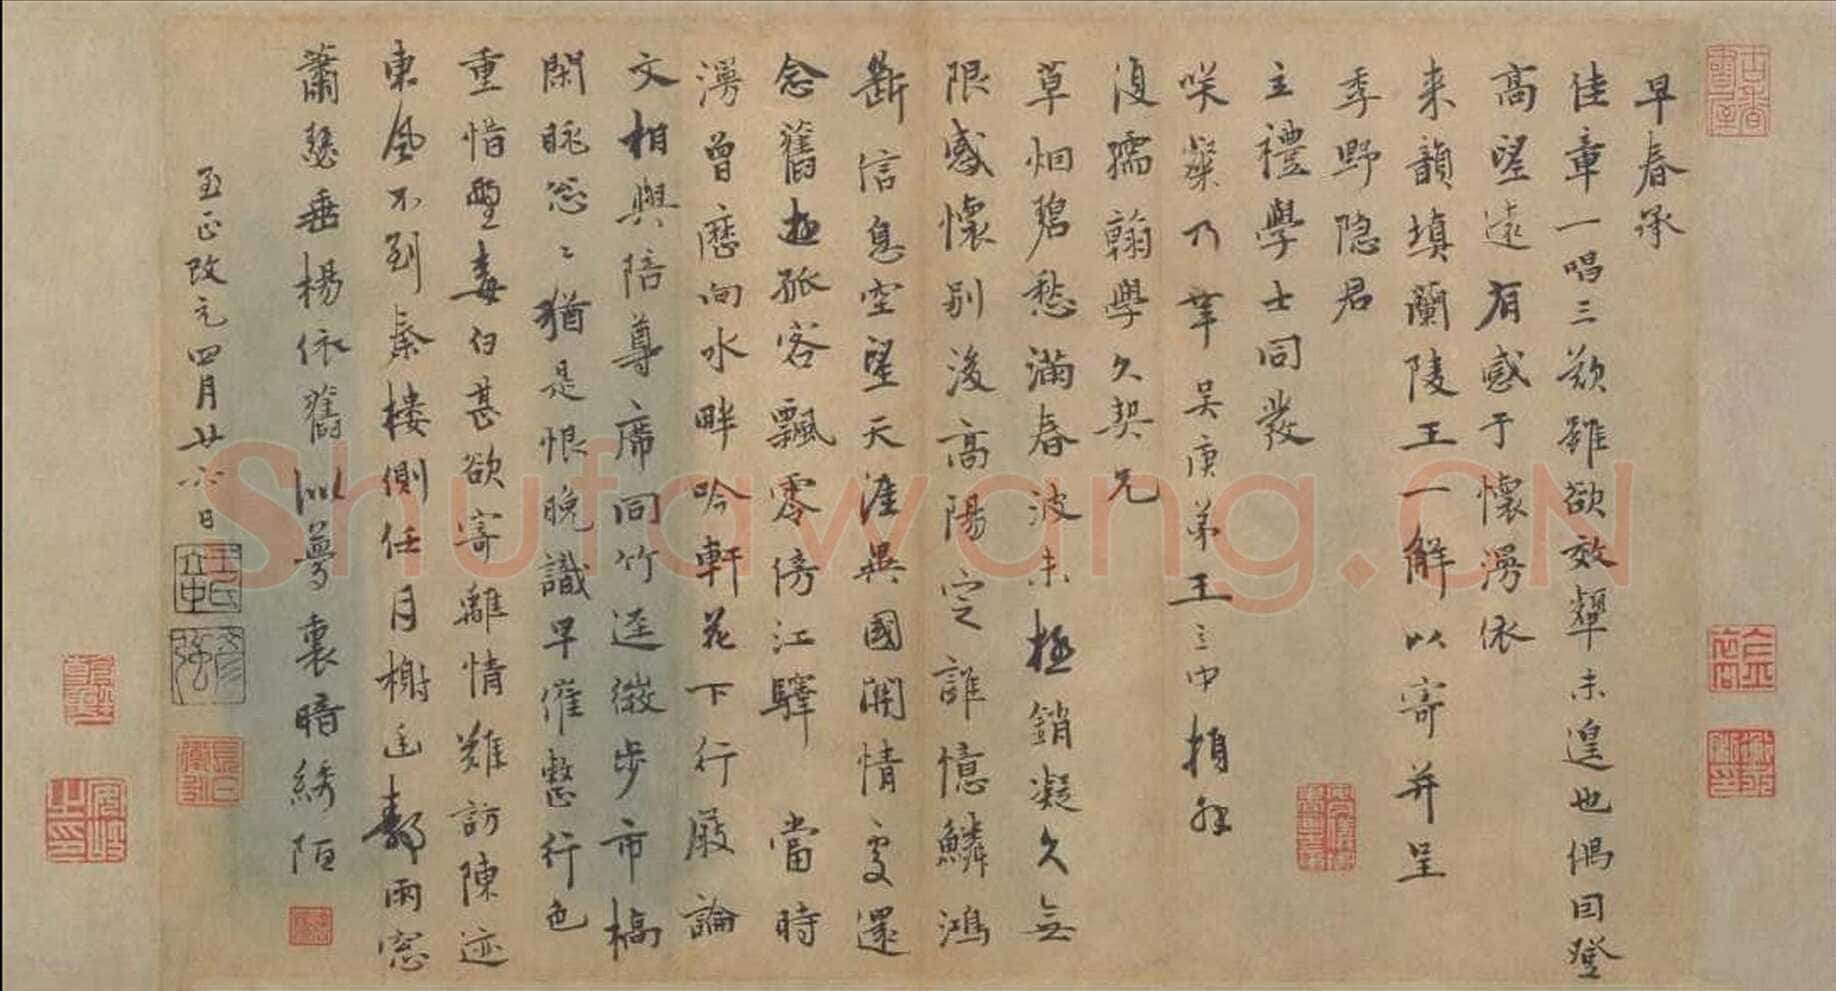 早春承
佳章一唱三歎雖欲效顰未遑也偶因登
高望遠有感于懷漫依
来韻填蘭陵王一解以寄并呈
季野隐君
主禮學士同發
咲粲乃幸吴庚弟王立中頓
復孺翰學久契兄
草烟碧愁滿春波未極銷凝久無
限感懷别後高陽定誰憶鱗鴻
斷信息空望天涯異國関情處還
念舊遊孤客飄零傍江驛 當時
漫曾歷向水畔吟軒花下行厰論
文相與陪尊席同竹逕微步市橋
閑眺怱〻猶是恨晚識早催整行色
重惜鬢毒白甚欲寄離情難訪陳迹
東風不到秦樓側任月榭 雨窓
蕭瑟垂楊依舊似夢裏暗綉陌
至正改元四月廿六日
王氏立中
彦强
Shufawang.CN